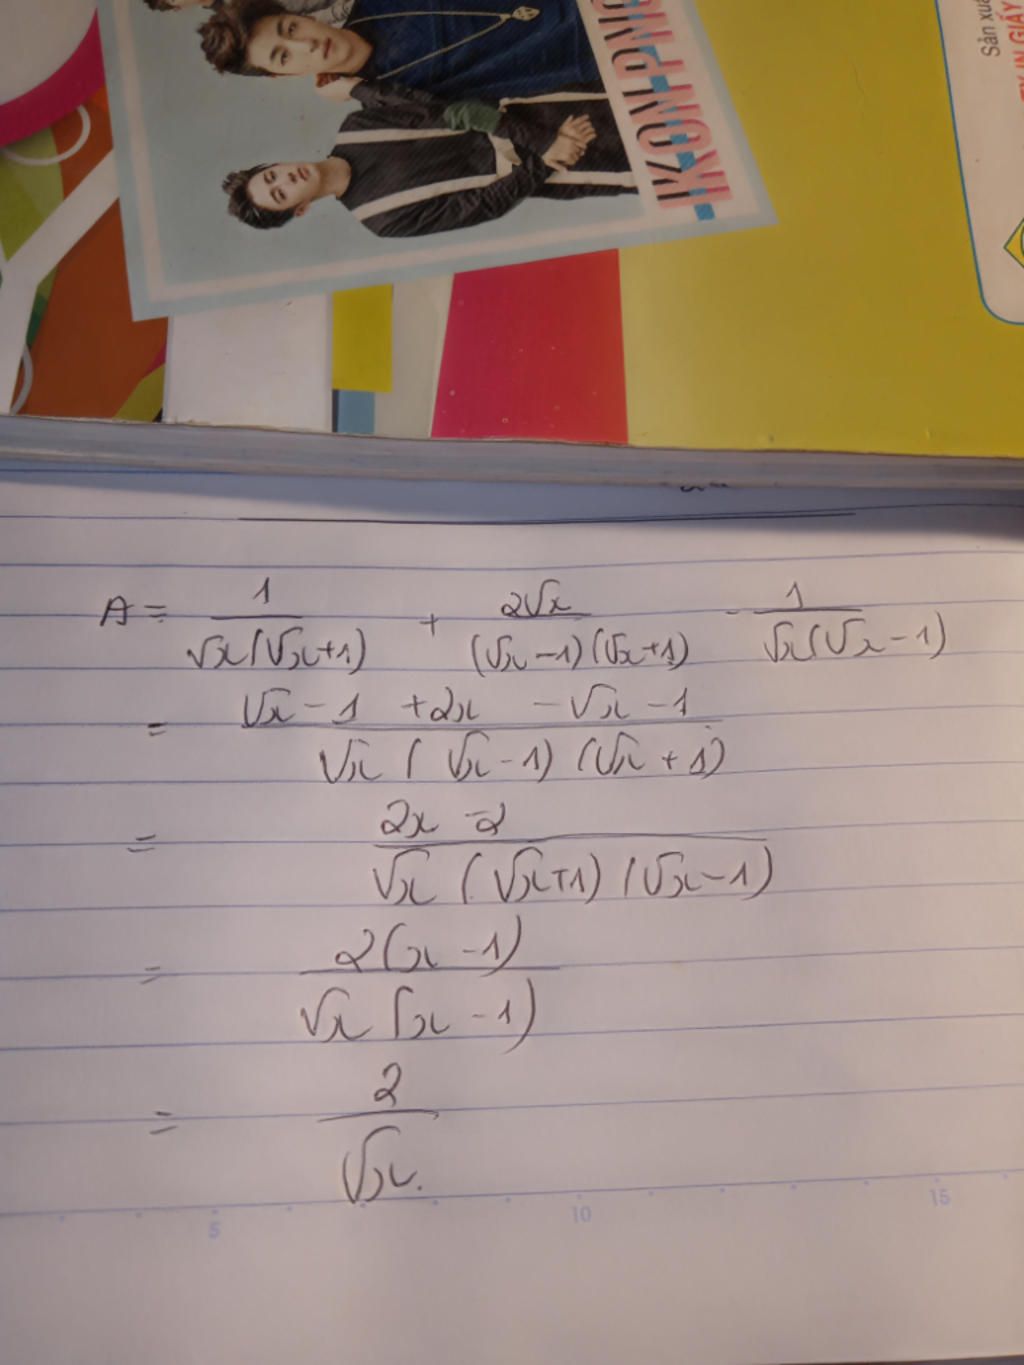 IKON PNG
Sản xuấ
IN GIẤY
A = 1/(√x(√x+1)) + 2√x/((√x-1)(√x+1)) - 1/(√x(√x-1))
= (√x-1 +2x -√x-1)/(√x(√x-1)(√x+1))
= (2x-2)/(√x(√x+1)(√x-1))
= 2(x-1)/(√x(x-1))
= 2/√x.
5 10 15